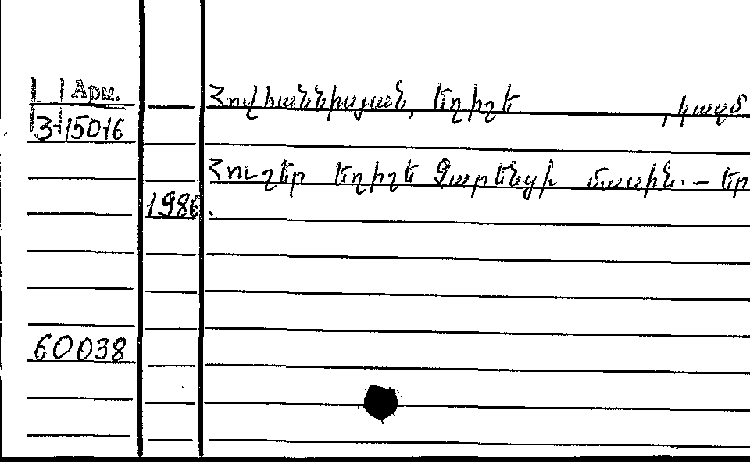 Арм.
Հովհաննիսյան, Եղիշե , կազմ
3-15016
Հուշեր Եղիշե Չարենցի մասին.— Եր
1986.
60038